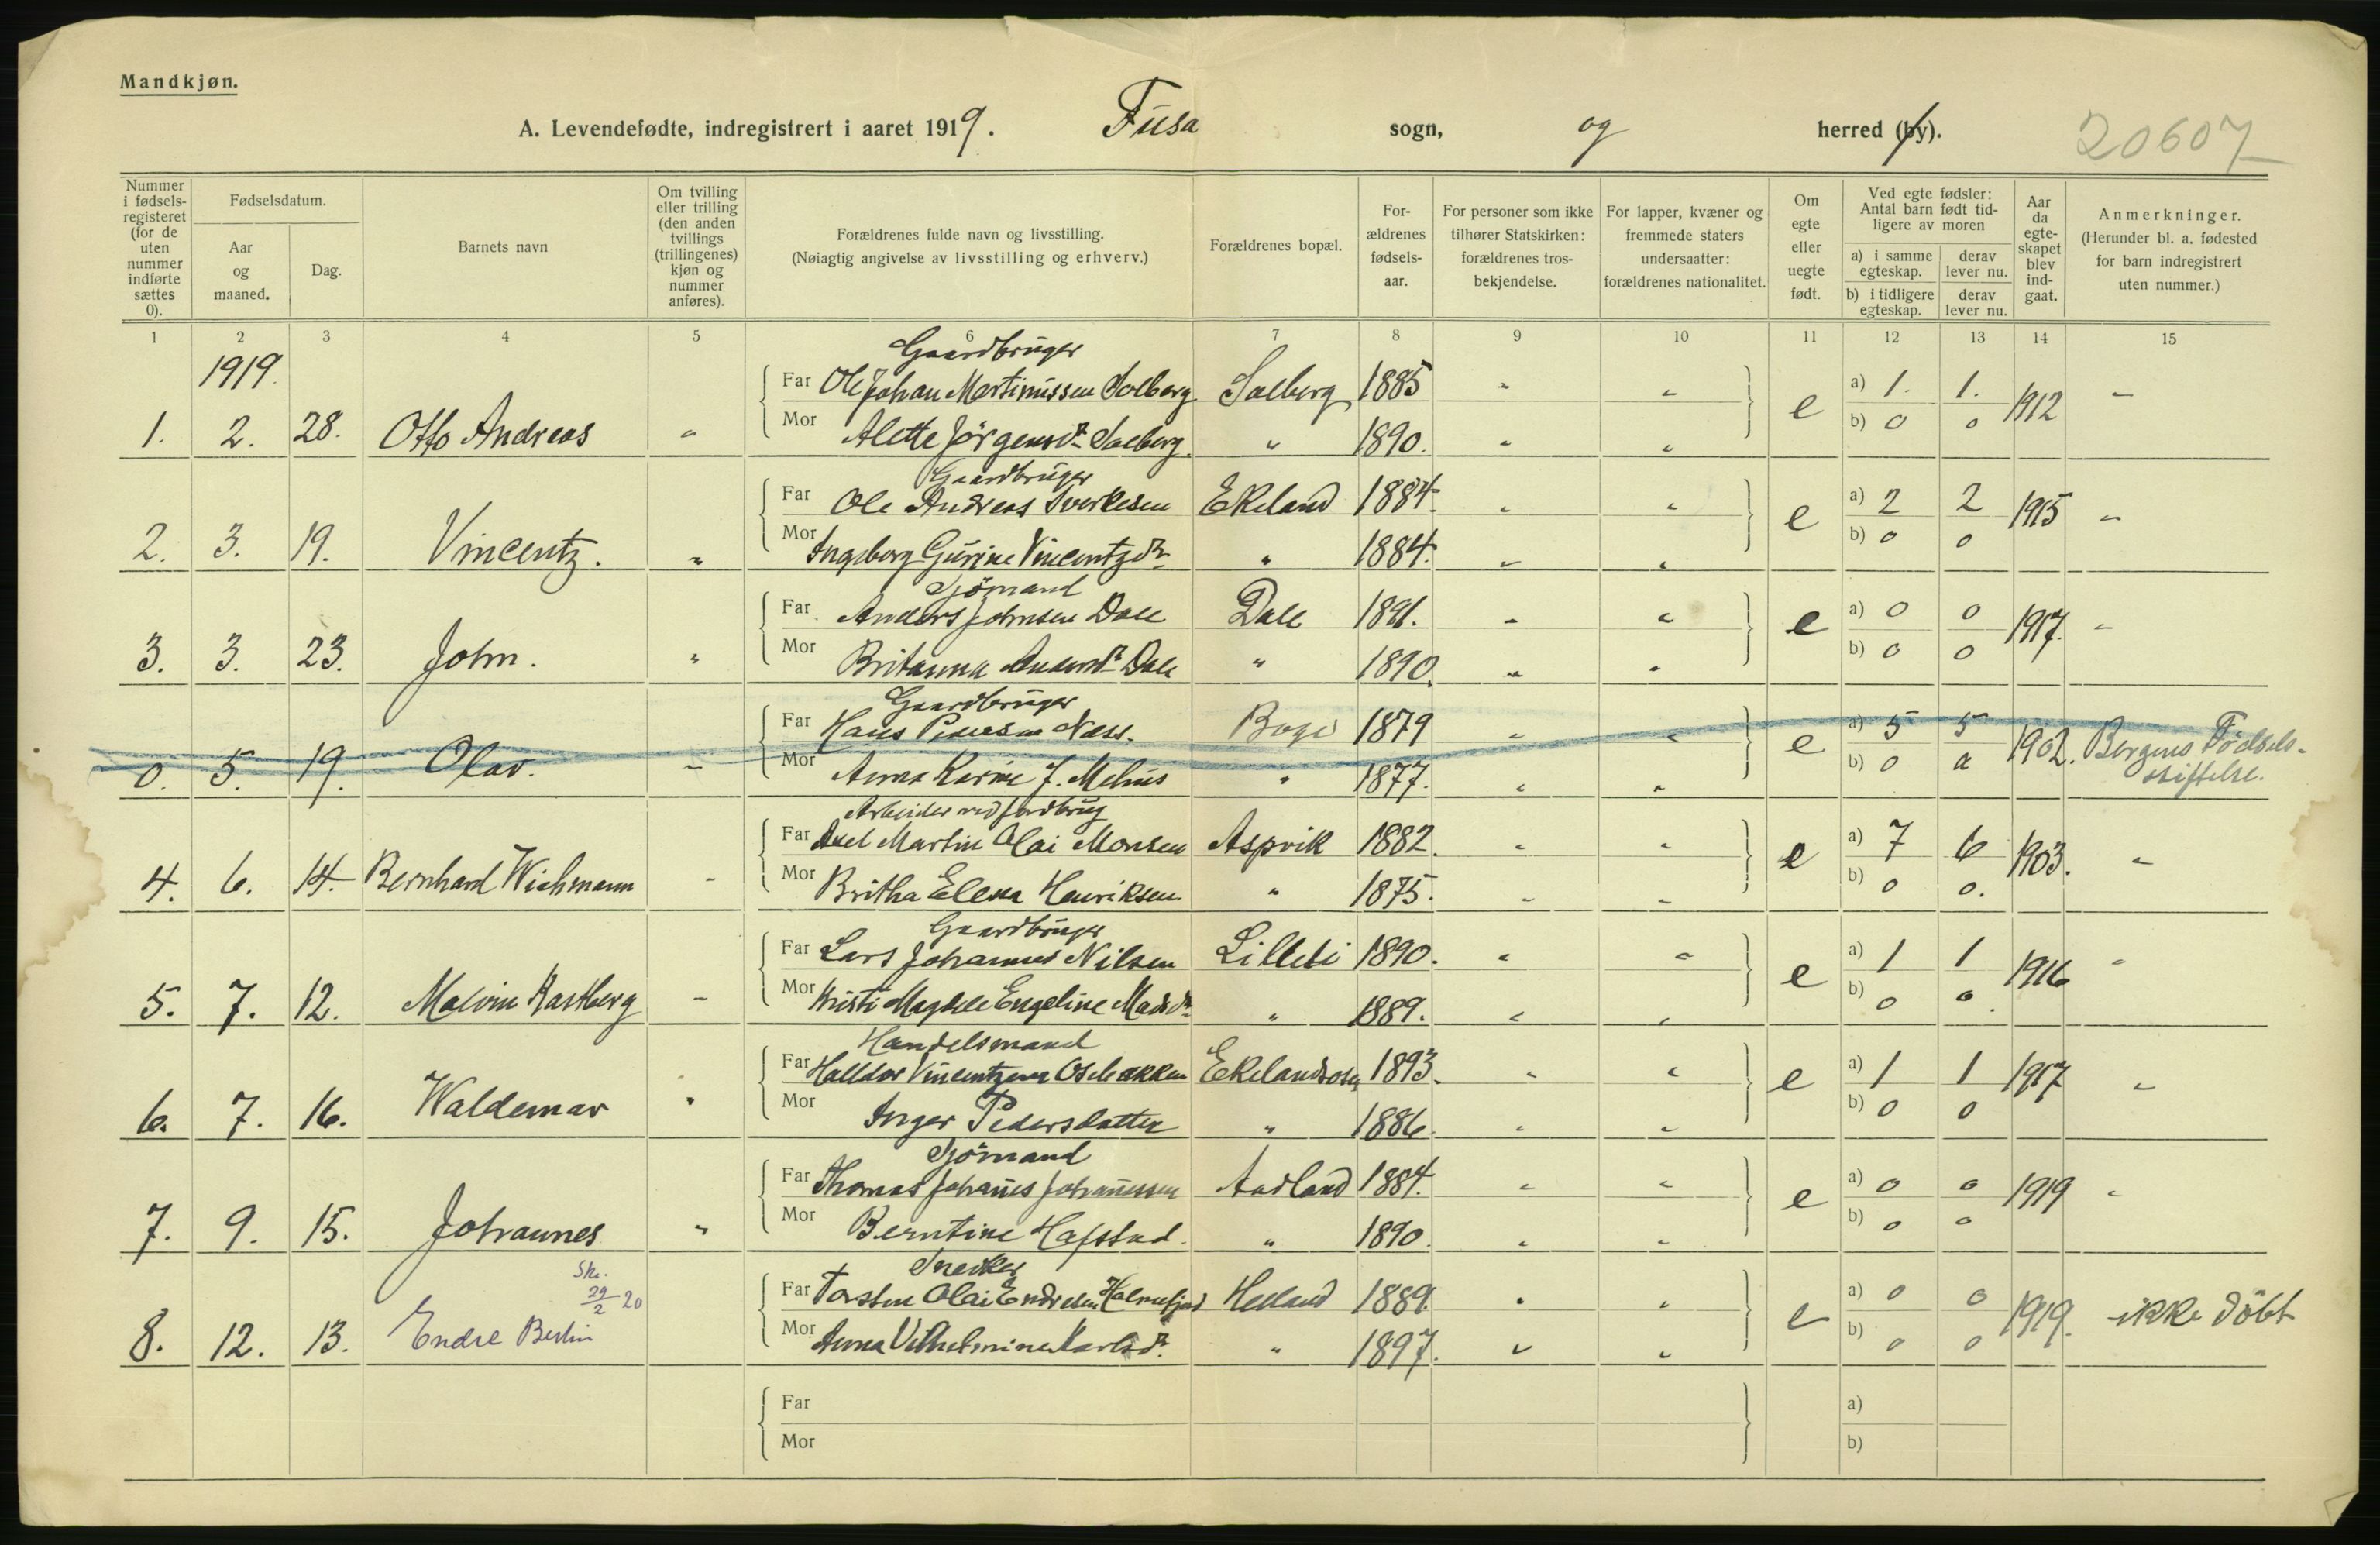 Mandkjøn.
A. Levendefødte, indregistrert i aaret 1919. Fusa sogn, og herred (by). 20607
Nummer i fødsels-registeret (for de uten nummer indførte sættes 0).
Fødselsdatum.
Aar og maaned.
Dag.
Barnets navn
Om tvilling eller trilling (den anden tvillings (trillingenes) kjøn og nummer anføres).
Forældrenes fulde navn og livsstilling.
(Nøiagtig angivelse av livsstilling og erhverv.)
Forældrenes bopæl.
For-ældrenes fødsels-aar.
For personer som ikke tilhører Statskirken: forældrenes tros-bekjendelse.
For lapper, kvæner og fremmede staters undersaatter: forældrenes nationalitet.
Om egte eller uegte født.
Ved egte fødsler: Antal barn født tid-ligere av moren
a) i samme egteskap. derav lever nu.
b) i tidligere egteskap. derav lever nu.
Aar da egte-skapet blev ind-gaat.
Anmerkninger.
(Herunder bl. a. fødested for barn indregistrert uten nummer.)
1 2 3 4 5 6 7 8 9 10 11 12 13 14 15
1919.
Gaardbruger
Far Ole Johan Martinussen Solberg Solberg 1885 " " a) 1. 1.
1. 2. 28. Otto Andreas " Mor Alette Jörgensdr Solberg. " 1890. " " e b) 0 0 1912 "
Gaardbruger
Far Ole Andreas Sverkesen Ekeland 1884. " " a) 2 2
2. 3. 19. Vincentz. " Mor Ingeborg Gurine Vincentzdr " 1884. " " e b) 0 0 1915 "
Sjömand
Far Anders Johnsen Dale Dale 1891. " " a) 0 0
3. 3. 23. John. " Mor Britanna Andersdr Dale " 1890. " " e b) 0 0 1917. "
Gaardbruger
Far Hans Pedersen Næss. 1879 " " a) 5 5
0. 5. 19. Olav. " Mor Anna Karine J. " 1877. " " e b) 0 0 1902. Bergens Födsels-stiftelse.
Arbeider ved jordbrug
Far Axel Martin Olai Monsen Aspvik 1882. " " a) 7 6
4. 6. 14. Bernhard Wichmann " Mor Britha Elena Henriksen " 1875. " " e b) 0 0. 1903. "
Gaardbruger
Far Lars Johannes Nilsen Lillebi 1890. " " a) 1 1
5. 7. 12. Malvin " Mor Kristi Engeline Madsdr " 1889. " " e b) 0 0 1916 "
Handelsmand
Far Halldor Vincentzen Ekelandsosen 1893. " " a) 1 1
6. 7. 16. Waldemar " Mor Inger Pedersdatter " 1886. " " e b) 0 0 1917 "
Sjömand
Far Thomas Johanes Johanessen Aadland 1884. " " a) 0 0
7. 9. 15. Johannes " Mor Berntine Hafstad. " 1890. " " e b) 0 0 1919 "
Snedker
Far Torsten Olai Endresen Holmefjord Helland 1889. " " a) 0 0
Sk. 29/2 20
8. 12. 13. Endre Berlin Mor Anna Vilhelmine Karlsdr. " 1897. " " e b) 0 0 1919. ikke döbt
Far a)
Mor b)